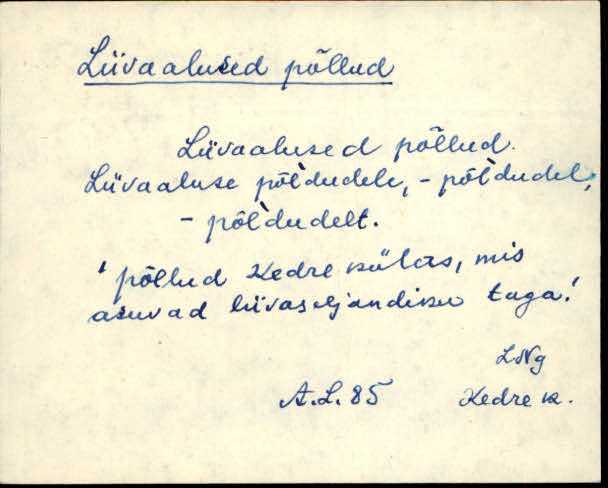 Liivaalused põllud
Liivaalused põllud.
Liivaaluse põl̀dudele, - põl̀dudel,
- põl̀dudelt.
' põllud Kedre külas, mis
asuvad liivaseljandiku taga!
LNg
A.L. 85 Kedre k.